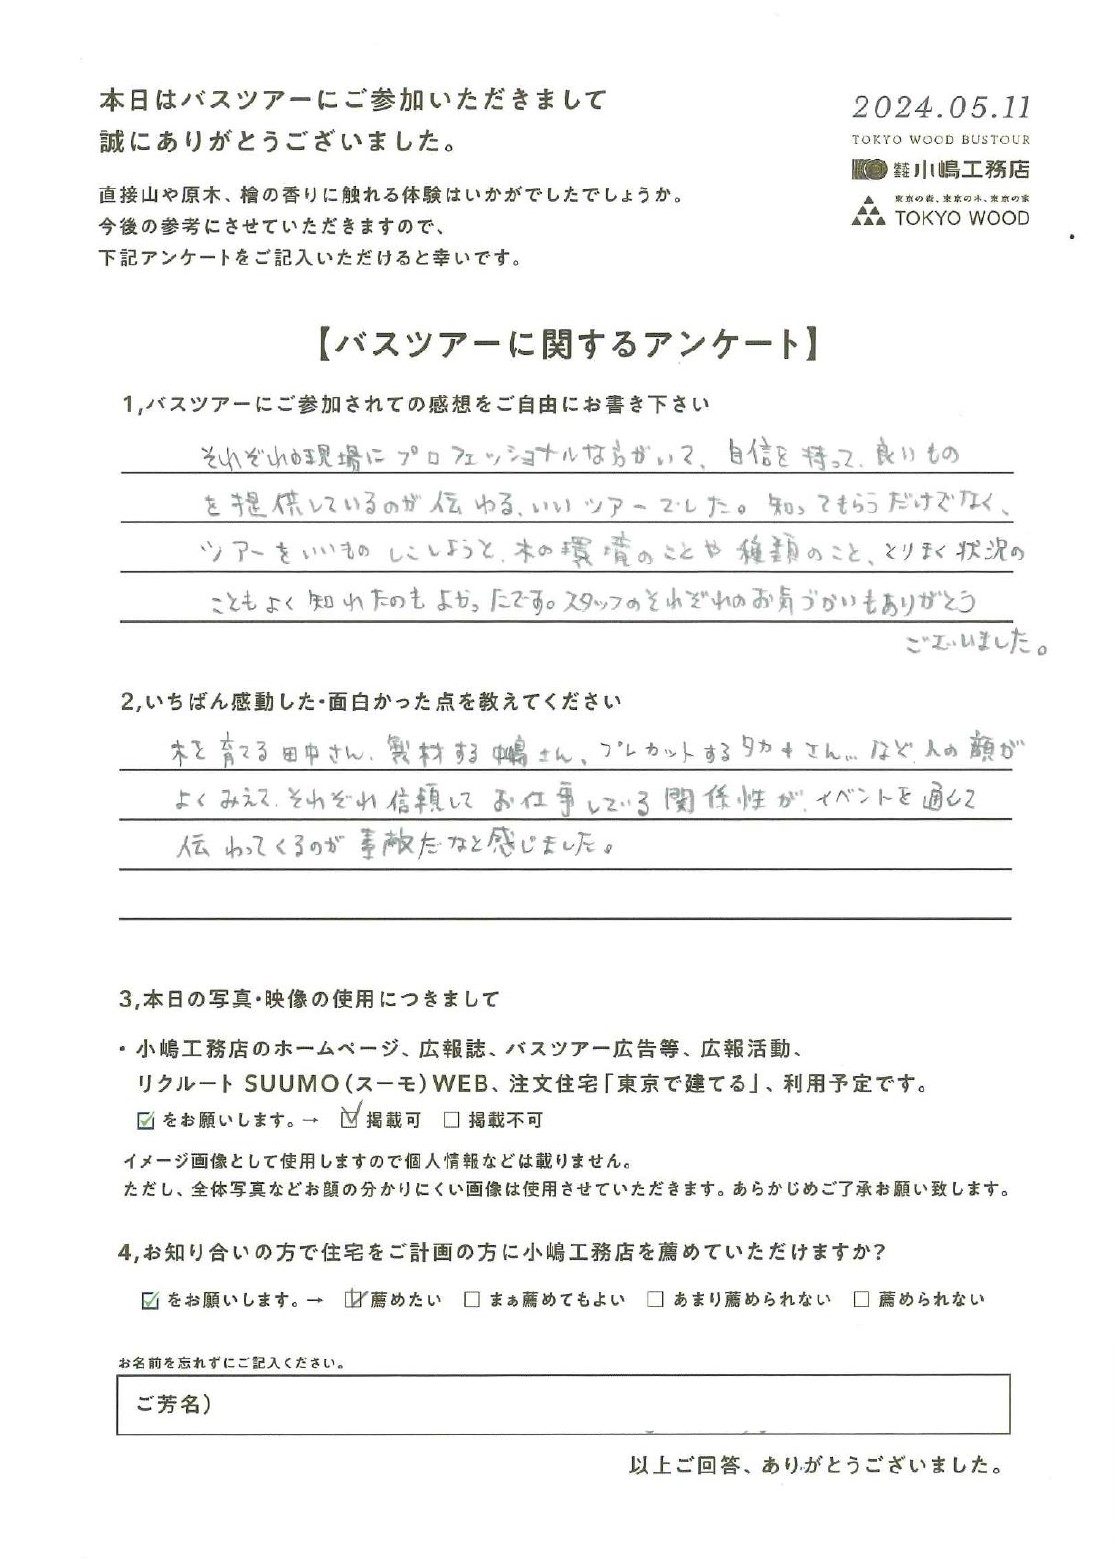 本日はバスツアーにご参加いただきまして
誠にありがとうございました。
直接山や原木、檜の香りに触れる体験はいかがでしたでしょうか。
今後の参考にさせていただきますので、
下記アンケートをご記入いただけると幸いです。
2024.05.11
TOKYO WOOD BUSTOUR
株式会社 小嶋工務店
東京の森、東京の木、東京の家
TOKYO WOOD
【バスツアーに関するアンケート】
1,バスツアーにご参加されての感想をご自由にお書き下さい
それぞれの現場にプロフェッショナルな方がいて、自信を持って、良いもの
を提供しているのが伝わる、いいツアーでした。知ってもらうだけでなく、
ツアーをいいものにしようと、木の環境のことや種類のこと、とりまく状況の
こともよく知れたのもよかったです。スタッフのそれぞれのお気づかいもありがとう
ございました。
2,いちばん感動した・面白かった点を教えてください
木を育てる田中さん、製材する中嶋さん、プレカットするタカキさん…など、人の顔が
よくみえて、それぞれ信頼してお仕事している関係性が、イベントを通して
伝わってくるのが素敵だなと感じました。
3,本日の写真・映像の使用につきまして
・小嶋工務店のホームページ、広報誌、バスツアー広告等、広報活動、
リクルート SUUMO(スーモ)WEB、注文住宅「東京で建てる」、利用予定です。
☑をお願いします。→ ☑ 掲載可 □ 掲載不可
イメージ画像として使用しますので個人情報などは載りません。
ただし、全体写真などお顔の分かりにくい画像は使用させていただきます。あらかじめご了承お願い致します。
4,お知り合いの方で住宅をご計画の方に小嶋工務店を薦めていただけますか?
☑をお願いします。→ ☑薦めたい □ まぁ薦めてもよい □ あまり薦められない □ 薦められない
お名前を忘れずにご記入ください。
ご芳名)
以上ご回答、ありがとうございました。